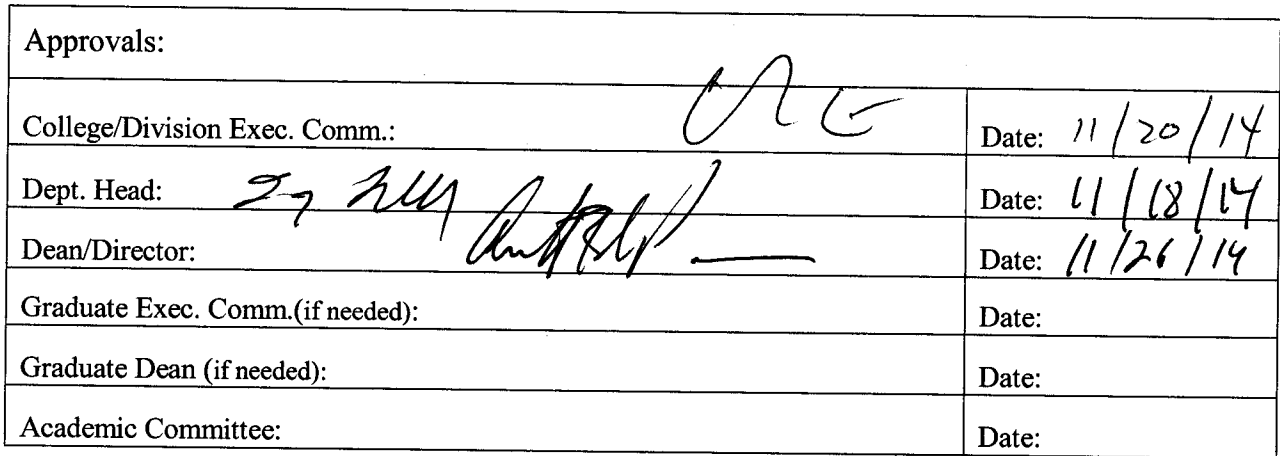 Approvals:
College/Division Exec. Comm.: Date: 11/20/14
Dept. Head: Date: 11/18/14
Dean/Director: Date: 11/26/14
Graduate Exec. Comm.(if needed): Date:
Graduate Dean (if needed): Date:
Academic Committee: Date: